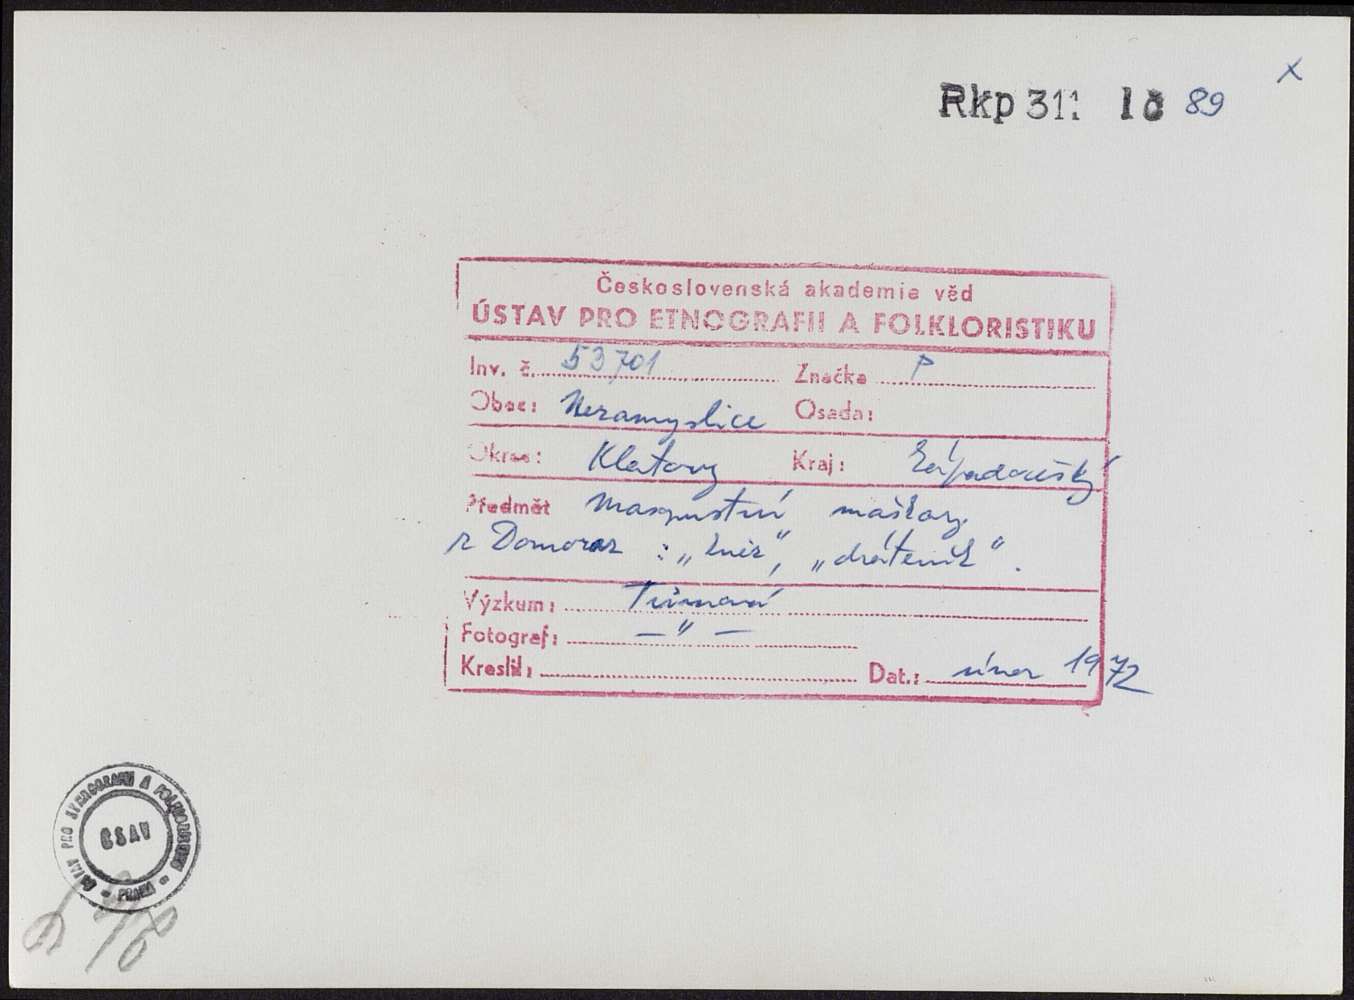 X
Rkp 311 18 89
Československá akademie věd
ÚSTAV PRO ETNOGRAFII A FOLKLORISTIKU
Inv. č. 53701 Značka P
Obec: Nezamyslice Osada:
Okres: Klatovy Kraj: Západočeský
Předmět masopustní maškary
z Domoraz : „kněz", „dráteník".
Výzkum: Tůmová
Fotograf: — " —
Kreslil: Dat.: únor 1972
ÚSTAV PRO ETNOGRAFII A FOLKLORISTIKU
ČSAV
PRAHA